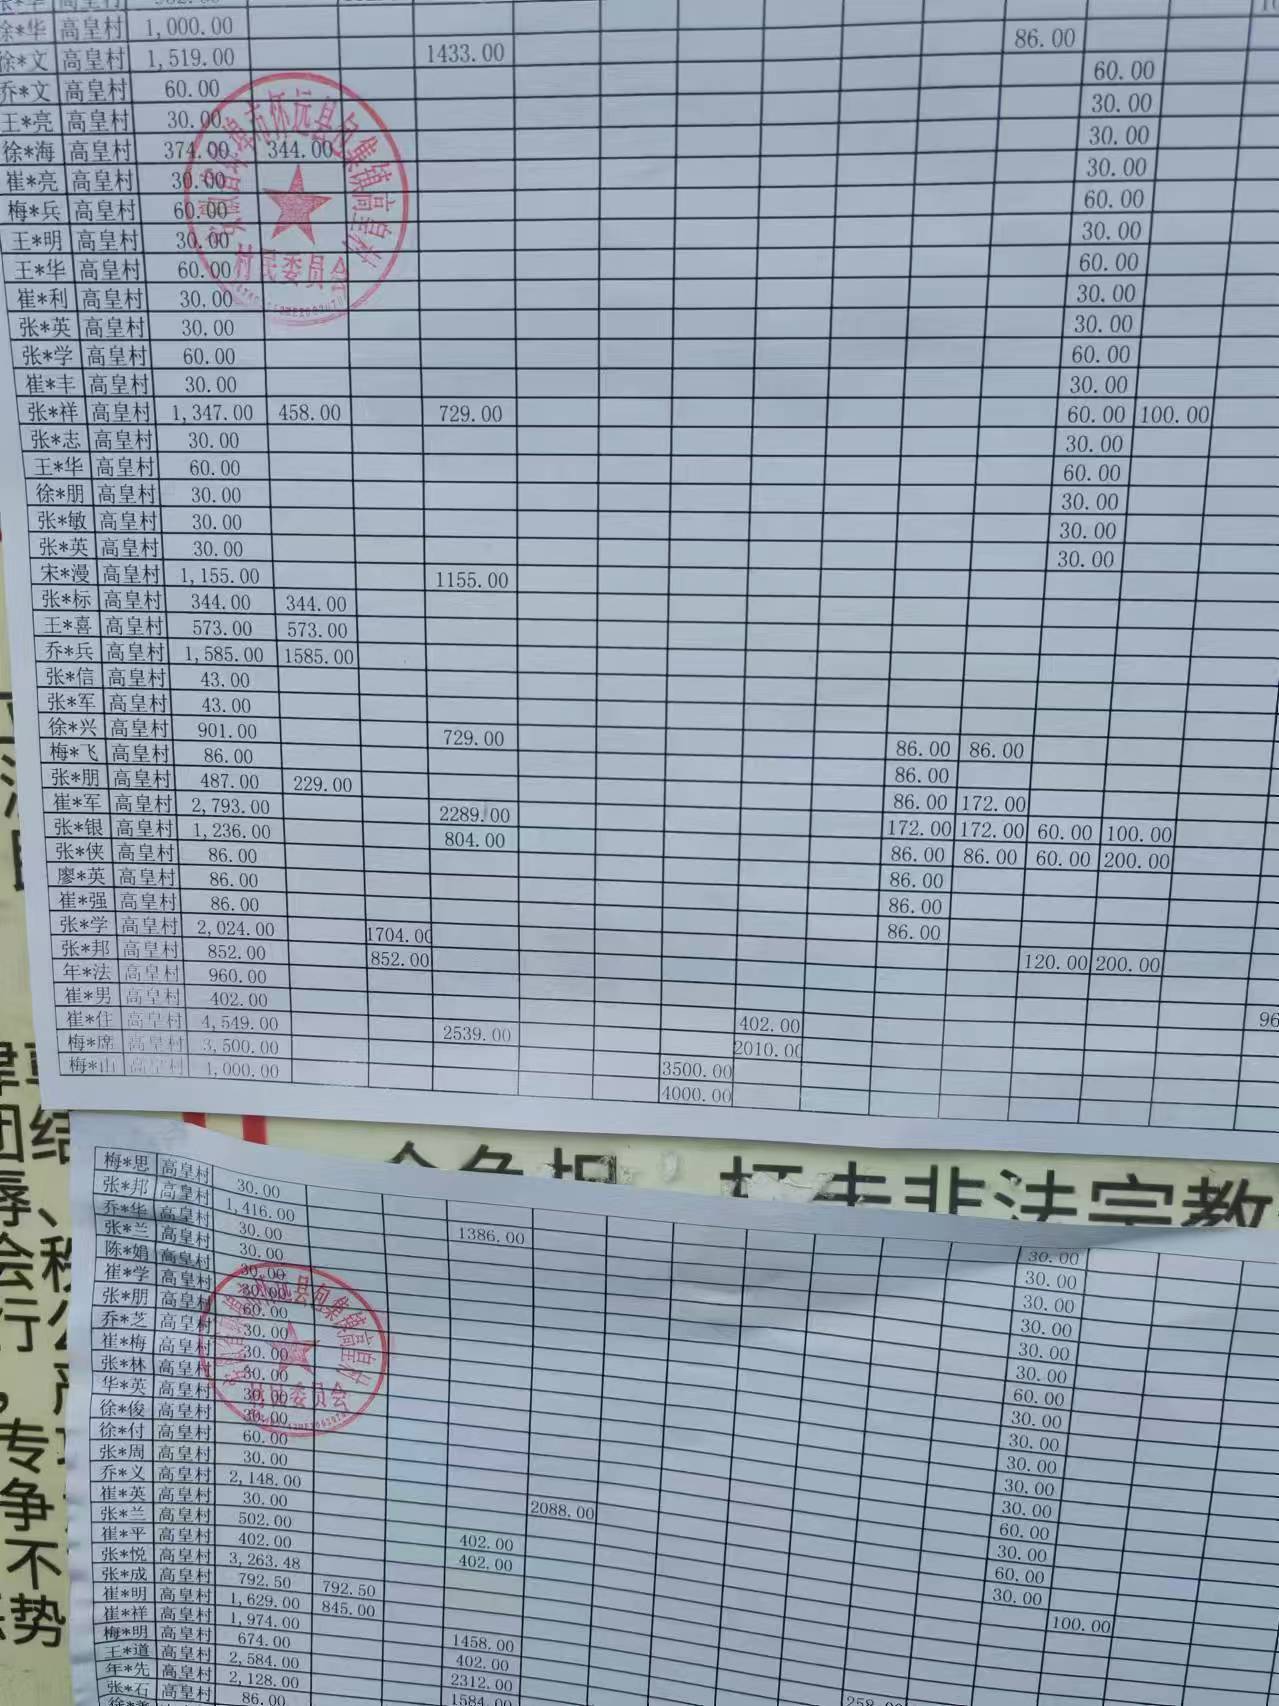 徐*华 高皇村 1,000.00
徐*文 高皇村 1,519.00 1433.00 86.00
乔*文 高皇村 60.00 60.00
王*亮 高皇村 30.00 30.00
徐*海 高皇村 374.00 344.00 30.00
崔*亮 高皇村 30.00 30.00
梅*兵 高皇村 60.00 60.00
王*明 高皇村 30.00 30.00
王*华 高皇村 60.00 60.00
崔*利 高皇村 30.00 30.00
张*英 高皇村 30.00 30.00
张*学 高皇村 60.00 60.00
崔*丰 高皇村 30.00 30.00
张*祥 高皇村 1,347.00 458.00 729.00 60.00 100.00
张*志 高皇村 30.00 30.00
王*华 高皇村 60.00 60.00
徐*朋 高皇村 30.00 30.00
张*敏 高皇村 30.00 30.00
张*英 高皇村 30.00 30.00
宋*漫 高皇村 1,155.00 1155.00
张*标 高皇村 344.00 344.00
王*喜 高皇村 573.00 573.00
乔*兵 高皇村 1,585.00 1585.00
张*信 高皇村 43.00
张*军 高皇村 43.00
徐*兴 高皇村 901.00 729.00 86.00 86.00
梅*飞 高皇村 86.00 86.00
张*朋 高皇村 487.00 229.00 86.00 172.00
崔*军 高皇村 2,793.00 2289.00 172.00 172.00 60.00 100.00
张*银 高皇村 1,236.00 804.00 86.00 86.00 60.00 200.00
张*侠 高皇村 86.00 86.00
廖*英 高皇村 86.00 86.00
崔*强 高皇村 86.00 86.00
张*学 高皇村 2,024.00 1704.00 120.00 200.00
张*邦 高皇村 852.00 852.00
年*法 高皇村 960.00 96
崔*男 高皇村 402.00 402.00
崔*住 高皇村 4,549.00 2539.00 2010.00
梅*席 高皇村 3,500.00 3500.00
梅*山 高皇村 1,000.00 4000.00
怀远县包集镇高皇村
村民委员会
非法宗教
梅*思 高皇村 30.00 30.00
张*邦 高皇村 1,416.00 1386.00 30.00
乔*华 高皇村 30.00 30.00
张*兰 高皇村 30.00 30.00
陈*娟 高皇村 30.00 30.00
崔*学 高皇村 30.00 30.00
张*朋 高皇村 60.00 60.00
乔*芝 高皇村 30.00 30.00
崔*梅 高皇村 30.00 30.00
张*林 高皇村 30.00 30.00
华*英 高皇村 30.00 30.00
徐*俊 高皇村 30.00 30.00
徐*付 高皇村 60.00 60.00
张*周 高皇村 30.00 30.00
乔*义 高皇村 2,148.00 2088.00 60.00
崔*英 高皇村 30.00 30.00
张*兰 高皇村 502.00 402.00 100.00
崔*平 高皇村 402.00 402.00
张*悦 高皇村 3,263.48
张*成 高皇村 792.50 792.50
崔*明 高皇村 1,629.00 845.00
崔*祥 高皇村 1,974.00 1458.00
梅*明 高皇村 674.00 402.00
王*道 高皇村 2,584.00 2312.00
年*先 高皇村 2,128.00 1584.00 258.00
张*石 高皇村 86.00
包集镇高皇村
村民委员会